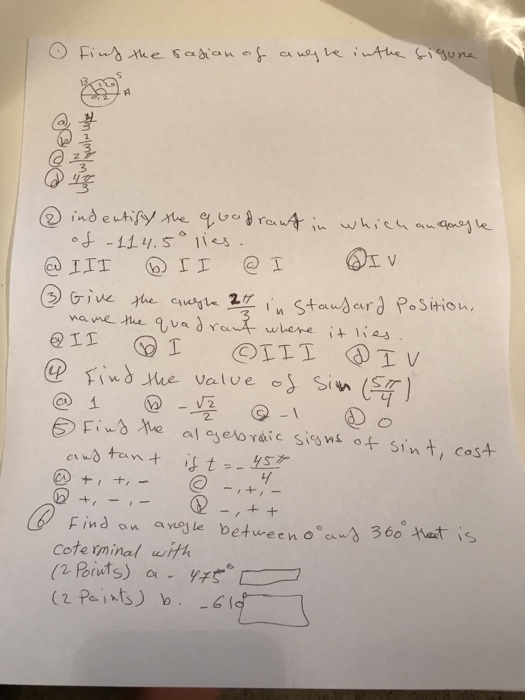 ① Find the radian of angle in the figure
B S
120
A
ⓐ 4/3
ⓑ 2/3
ⓒ 2π/3
ⓓ 4π/3
② indentify the quadrant in which an angle
of -114.5° lies.
ⓐ III ⓑ II ⓒ I ⓓ IV
③ Give the angle 2π/3 in standard Position,
name the quadrant where it lies.
ⓐ II ⓑ I ⓒ III ⓓ IV
④ Find the value of Sin (5π/4)
ⓐ 1 ⓑ -√2/2 ⓒ -1 ⓓ 0
⑤ Find the algebraic signs of sint, cost
and tant if t = - 45π/4
ⓐ +, +, - ⓒ -, +, -
ⓑ +, -, - ⓓ -, + +
⑥ Find an angle between 0° and 360° that is
coterminal with
(2 Points) a - 475°
(2 Points) b. -610°